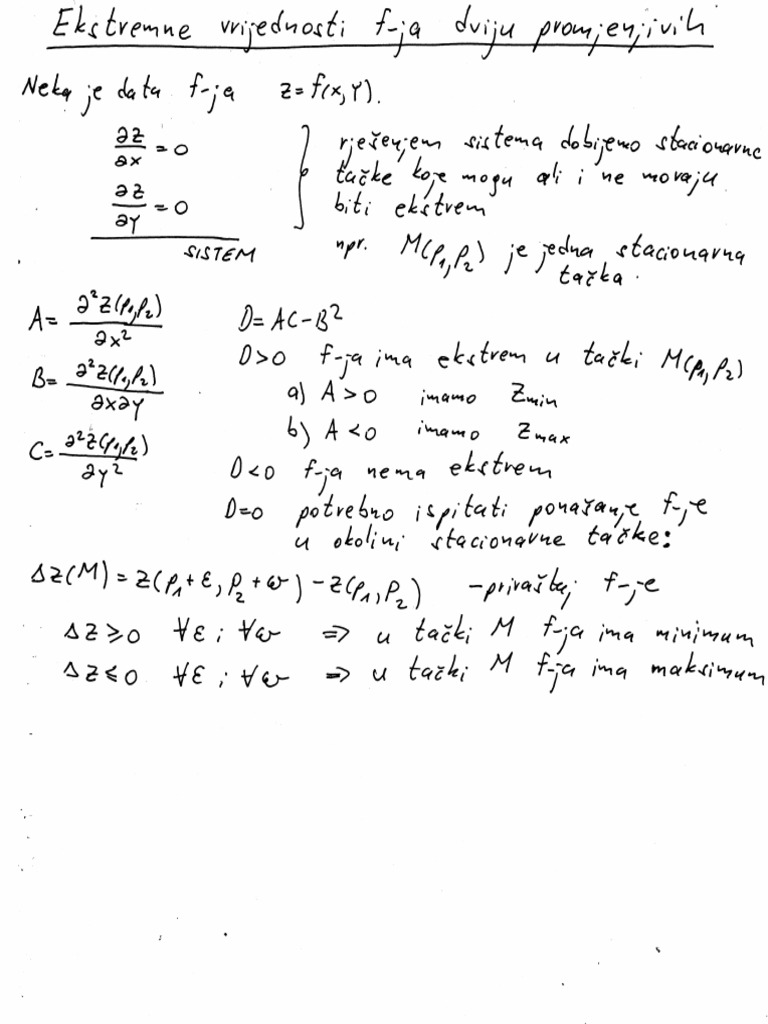 Ekstremne vrijednosti f-ja dviju promjenjivih
Neka je data f-ja z=f(x,Y).
∂z/∂x = 0
∂z/∂Y = 0
SISTEM
rješenjem sistema dobijemo stacionarne
tačke koje mogu ali i ne moraju
biti ekstrem
npr. M(p₁,p₂) je jedna stacionarna
tačka.
A= ∂²z(p₁,p₂)/∂x²
B= ∂²z(p₁,p₂)/∂x∂y
C= ∂²z(p₁,p₂)/∂y²
D=AC-B²
D>0 f-ja ima ekstrem u tački M(p₁,p₂)
a) A>0 imamo Zmin
b) A<0 imamo Zmax
D<0 f-ja nema ekstrem
D=0 potrebno ispitati ponašanje f-je
u okolini stacionarne tačke:
Δz(M) = z(p₁+ε, p₂+ω) - z(p₁,p₂) - priraštaj f-je
Δz≥0 ∀ε i ∀ω => u tački M f-ja ima minimum
Δz≤0 ∀ε i ∀ω => u tački M f-ja ima maksimum